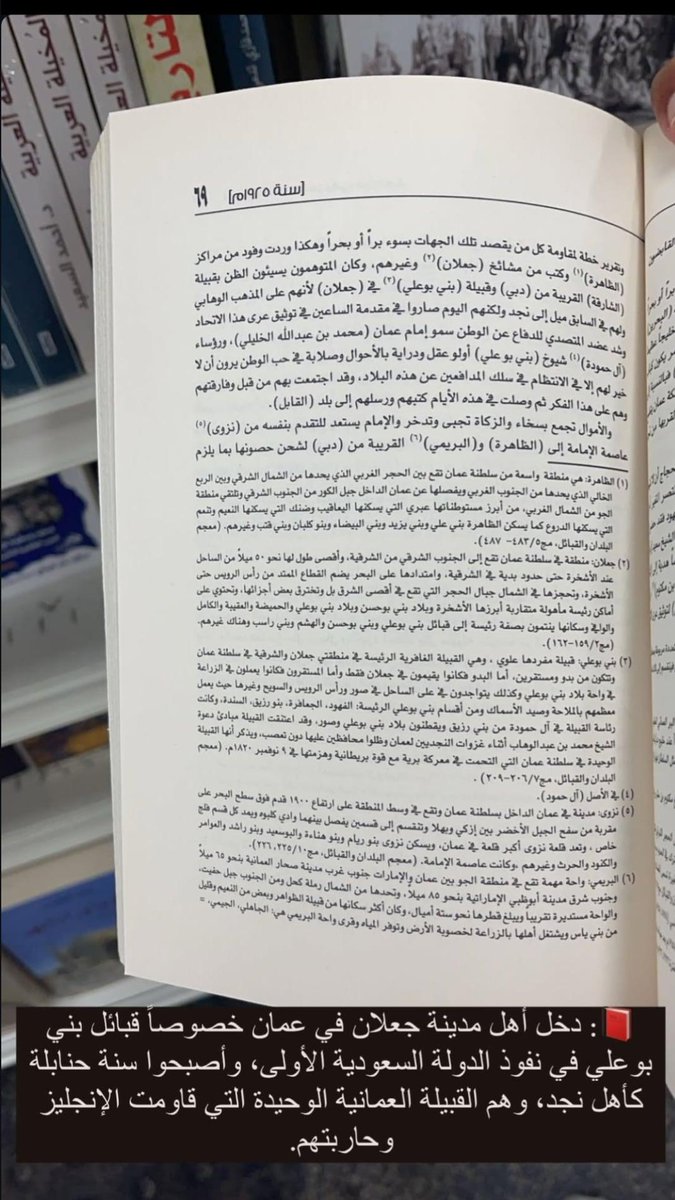 المخيلة العربية
المخيلة العربية
د. أحمد السعيد
[سنة ١٩٢٥م] ٦٩
وتقرير خطة لمقاومة كل من يقصد تلك الجهات بسوء براً أو بحراً وهكذا وردت وفود من مراكز
(الظاهرة)(١) وكتب من مشائخ (جعلان)(٢) وغيرهم، وكان المتوهمون يسيئون الظن بقبيلة
(الشارقة) القريبة من (دبي) وقبيلة (بني بوعلي)(٣) في (جعلان) لأنهم على المذهب الوهابي
ولهم في السابق ميل إلى نجد ولكنهم اليوم صاروا في مقدمة الساعين في توثيق عرى هذا الاتحاد
وشد عضد المتصدي للدفاع عن الوطن سمو إمام عمان (محمد بن عبدالله الخليلي)، ورؤساء
(آل حمودة)(٤) شيوخ (بني بو علي) أولو عقل ودراية بالأحوال وصلابة في حب الوطن يرون أن لا
خير لهم إلا في الانتظام في سلك المدافعين عن هذه البلاد، وقد اجتمعت بهم من قبل وفارقتهم
وهم على هذا الفكر ثم وصلت في هذه الأيام كتبهم ورسلهم إلى بلد (القابل).
والأموال تجمع بسخاء والزكاة تجبى وتدخر والإمام يستعد للتقدم بنفسه من (نزوى)(٥)
عاصمة الإمامة إلى (الظاهرة) و(البريمي)(٦) القريبة من (دبي) لشحن حصونها بما يلزم
(١) الظاهرة: هي منطقة واسعة من سلطنة عمان تقع بين الحجر الغربي الذي يحدها من الشمال الشرقي وبين الربع
الخالي الذي يحدها من الجنوب الغربي ويفصلها عن عمان الداخل جبل الكور من الجنوب الشرقي وتلتقي منطقة
الجو من الشمال الغربي، من أبرز مستوطناتها عبري التي يسكنها اليعاقيب وضنك التي يسكنها النعيم وتنعم
التي يسكنها الدروع كما يسكن الظاهرة بني علي وبني يزيد وبني البيضاء وبنو كلبان وبني قتب وغيرهم. (معجم
البلدان والقبائل، مج٤٨٣/٥- ٤٨٧).
(٢) جعلان: منطقة في سلطنة عمان تقع إلى الجنوب الشرقي من الشرقية، وأقصى طول لها نحو ٥٠ ميلاً من الساحل
عند الأشخرة حتى حدود بدية في الشرقية، وامتدادها على البحر يضم القطاع الممتد من رأس الرويس حتى
الأشخرة، وتحجزها في الشمال جبال الحجر التي تقع في أقصى الشرق بل وتخترق بعض أجزائها، وتحتوي على
أماكن رئيسة مأهولة متقاربة أبرزها الأشخرة وبلاد بني بوحسن وبلاد بني بوعلي والحميضة والعقيبة والكامل
والوافي وسكانها ينتمون بصفة رئيسة إلى قبائل بني بوعلي وبني بوحسن والهشم وبني راسب وهناك غيرهم.
(مج١٥٩/٢-١٦٢).
(٣) بني بوعلي: قبيلة مفردها علوي ، وهي القبيلة الغافرية الرئيسة في منطقتي جعلان والشرقية في سلطنة عمان
وتتكون من بدو ومستقرين، أما البدو فكانوا يقيمون في جعلان فقط وأما المستقرون فكانوا يعملون في الزراعة
في واحة بلاد بني بوعلي وكذلك يتواجدون في على الساحل في صور ورأس الرويس والسويح وغيرها حيث يعمل
معظمهم بالملاحة وصيد الأسماك ومن أقسام بني بوعلي الرئيسة: الفهود، الجعافرة، بنو رزيق، السندة، وكانت
رئاسة القبيلة في آل حمودة من بني رزيق ويقطنون بلاد بني بوعلي وصور، وقد اعتنقت القبيلة مبادئ دعوة
الشيخ محمد بن عبدالوهاب أثناء غزوات النجديين لعمان وظلوا محافظين عليها دون تعصب، ويذكر أنها القبيلة
الوحيدة في سلطنة عمان التي التحمت في معركة برية مع قوة بريطانية وهزمتها في ٩ نوفمبر ١٨٢٠م. (معجم
البلدان والقبائل، مج٢٠٦/٧-٢٠٩).
(٤) في الأصل (آل حمود).
(٥) نزوى: مدينة في عمان الداخل بسلطنة عمان وتقع في وسط المنطقة على ارتفاع ١٩٠٠ قدم فوق سطح البحر على
مقربة من سفح الجبل الأخضر بين إزكي وبهلا وتنقسم إلى قسمين يفصل بينهما وادي كلبوه ويمد كل قسم فلج
خاص ، وتعد قلعة نزوى أكبر قلعة في عمان، ويسكن نزوى بنو ريام وبنو هناءة والبوسعيد وبنو راشد والعوامر
والكنود والحرث وغيرهم ،وكانت عاصمة الإمامة. (معجم البلدان والقبائل، مج٢٢٥/١٠،٢٢٦).
(٦) البريمي: واحة مهمة تقع في منطقة الجو بين عمان والإمارات جنوب غرب مدينة صحار العمانية بنحو ٦٥ ميلاً
وجنوب شرق مدينة أبوظبي الإماراتية بنحو ٨٥ ميلاً، وتحدها من الشمال رملة كحل ومن الجنوب جبل حفيت،
والواحة مستديرة تقريباً ويبلغ قطرها نحو ستة أميال، وكان أكثر سكانها من قبيلة الظواهر وبعض من النعيم وقليل
من بني ياس ويشتغل أهلها بالزراعة لخصوبة الأرض وتوفر المياه وقرى واحة البريمي هي: الجاهلي، الجيمي، =
: دخل أهل مدينة جعلان في عمان خصوصاً قبائل بني
بوعلي في نفوذ الدولة السعودية الأولى، وأصبحوا سنة حنابلة
كأهل نجد، وهم القبيلة العمانية الوحيدة التي قاومت الإنجليز
وحاربتهم.